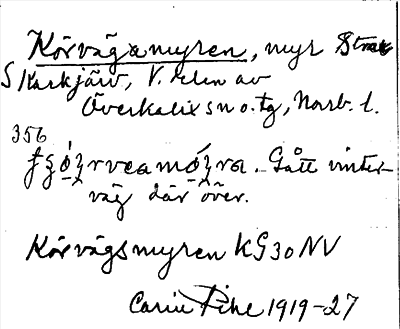 Körvägamyren, myr
S Karkjärv, V. delen av
Överkalix sn o. tg, Norrb. l.
356
Gått vinter-
väg där över.
Körvägsmyren KG30NV
Carin Pihl 1919-27